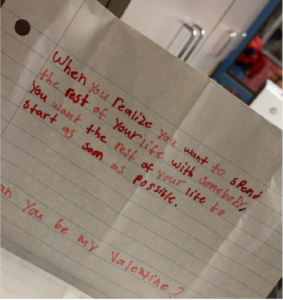 When you realize you want to spend
the rest of your life with somebody,
you want the rest of your life to
start as soon as possible.
an you be my Valentine?